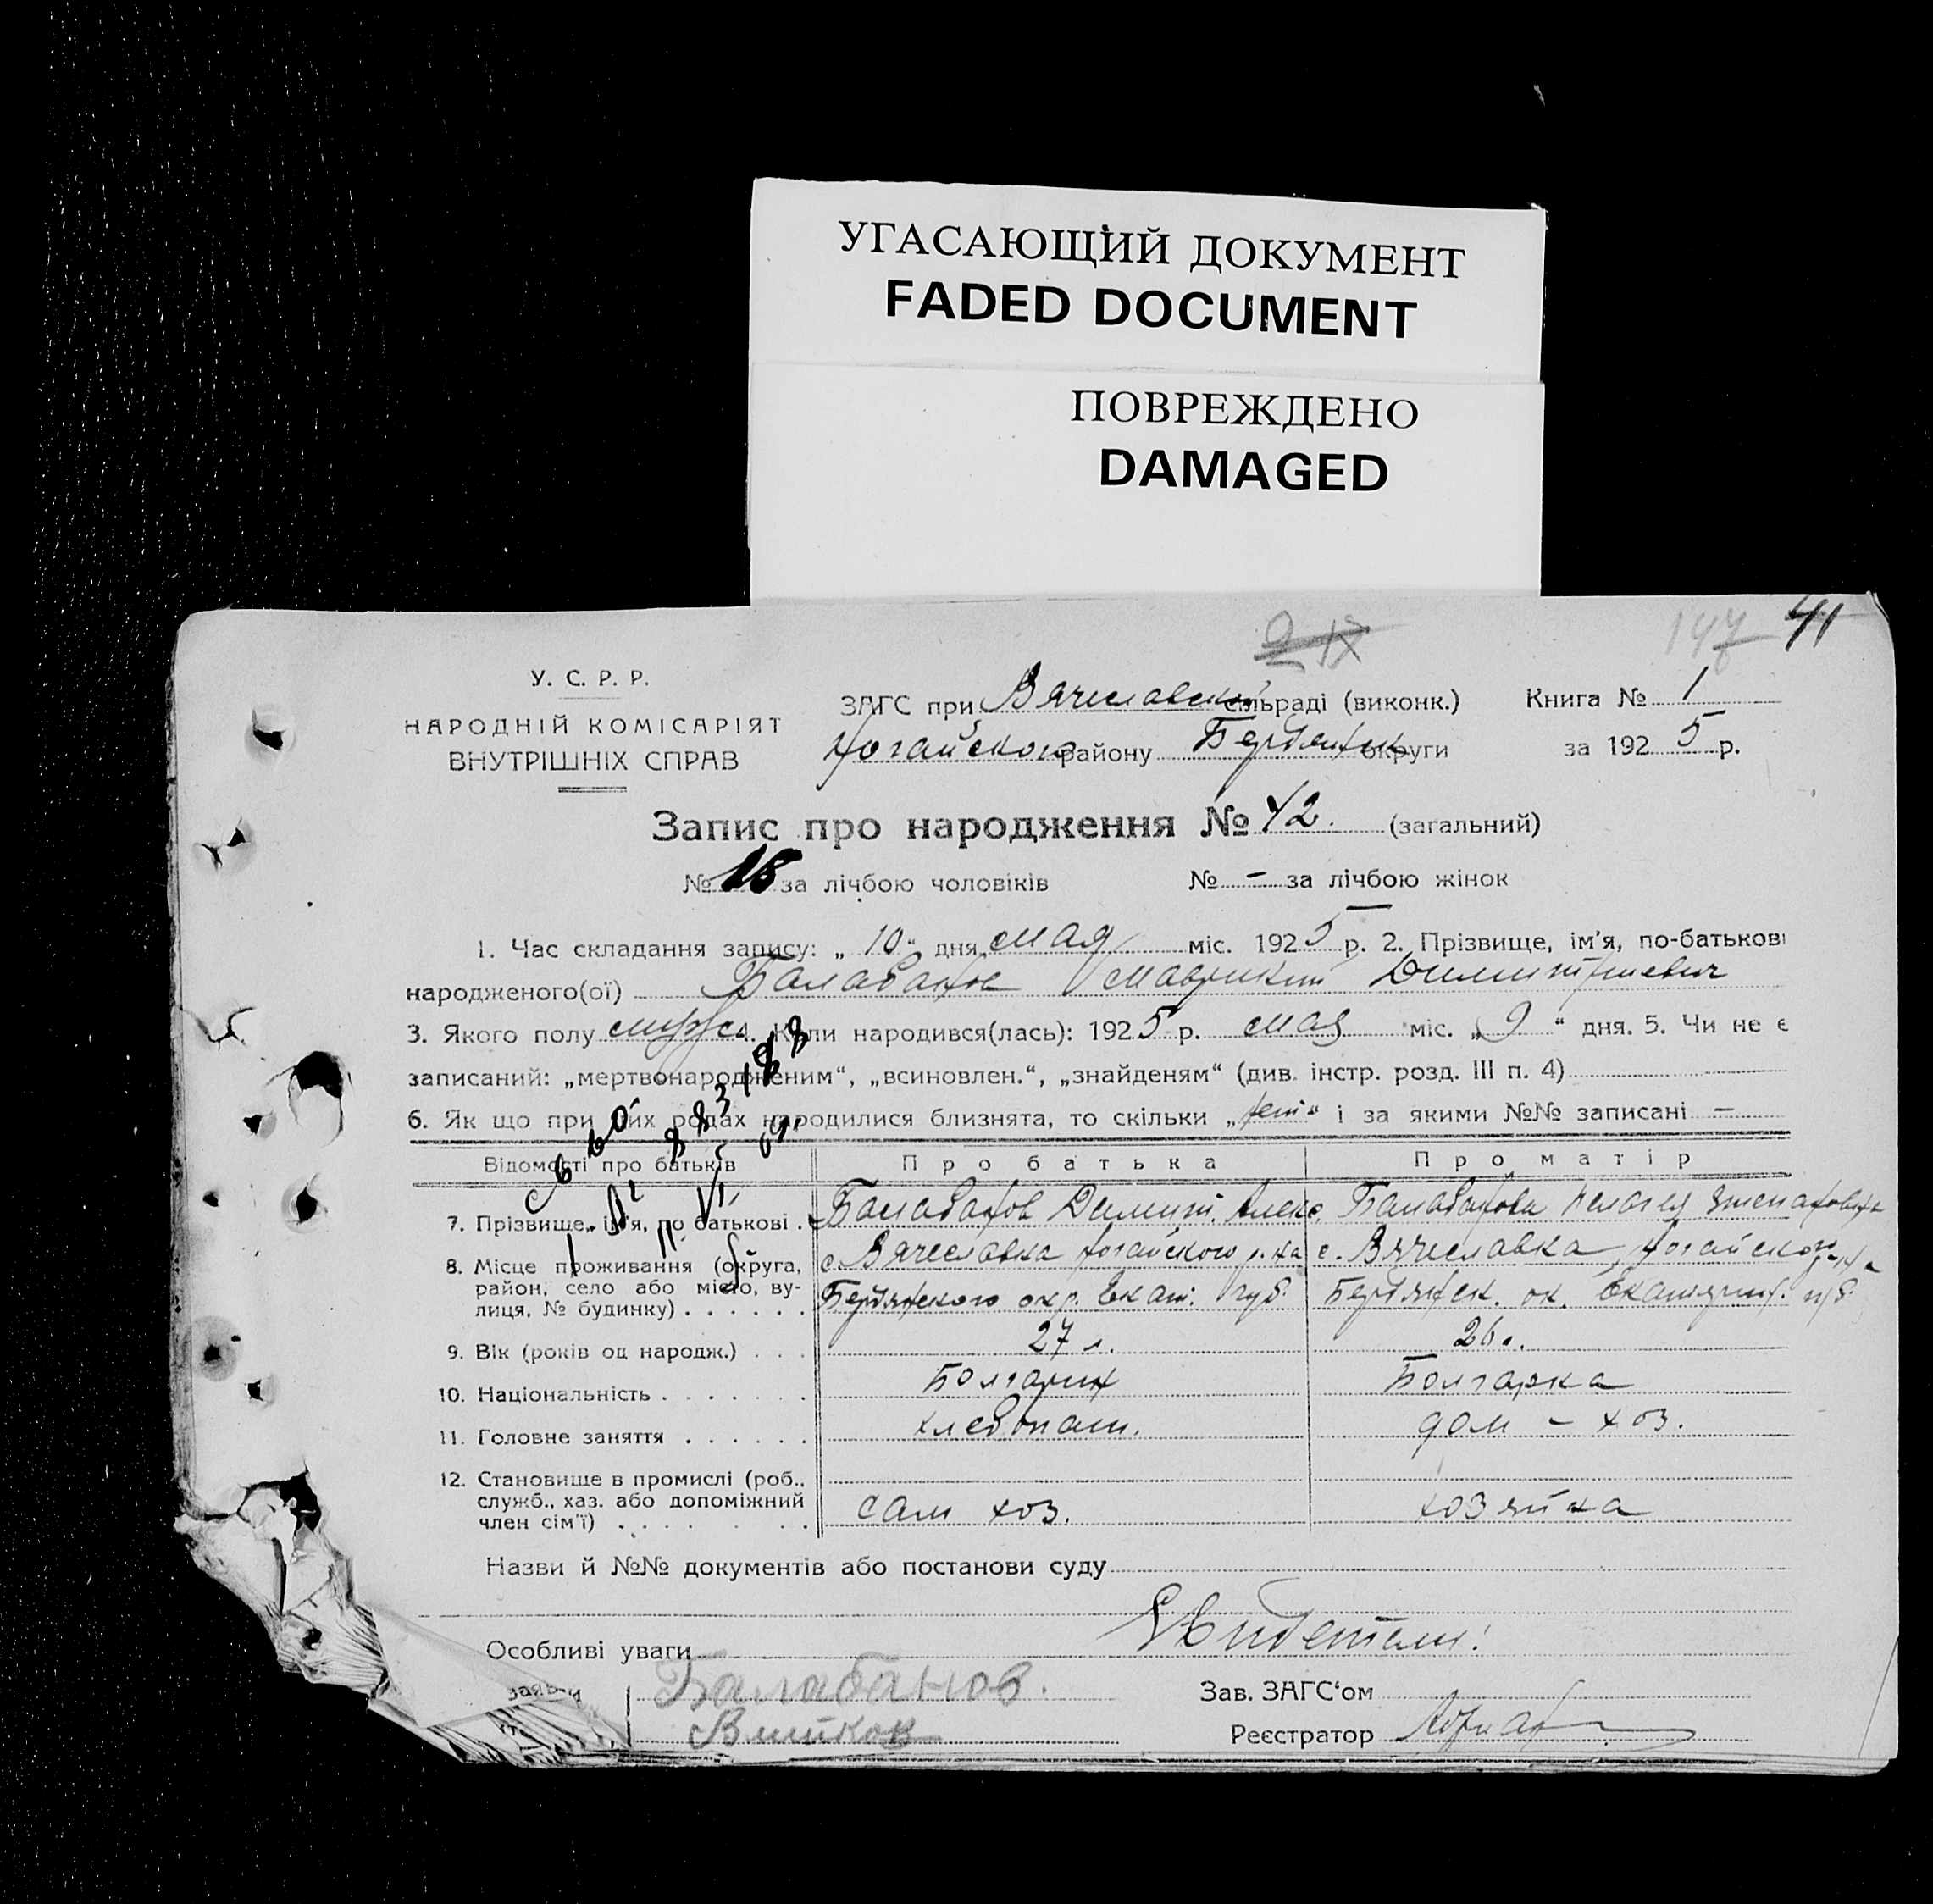 УГАСАЮЩИЙ ДОКУМЕНТ
FADED DOCUMENT
ПОВРЕЖДЕНО
DAMAGED
147 41
У. С. Р. Р.
НАРОДНІЙ КОМІСАРІЯТ
ВНУТРІШНІХ СПРАВ
ЗАГС при Вячеславской сільраді (виконк.) Книга № 1
Ногайского району Бердянск округи за 1925 р.
Запис про народження № 42. (загальний)
№ за лічбою чоловіків № – за лічбою жінок
1. Час складання запису: „ 10 “ дня мая міс. 1925 р. 2. Прізвище, ім’я, по-батькові
народженого(ої) Балабанов Маврикий Димитриевич
3. Якого полу мужс 4. Коли народився(лась): 1925 р. мая міс. „ 9 “ дня. 5. Чи не є
записаний: „мертвонародженим“, „всиновлен.“, „знайденям“ (див. інстр. розд. III п. 4)
6. Як що при цих родах народилися близнята, то скільки „нет“ і за якими №№ записані –
Відомості про батьків Про батька Про матір
7. Прізвище, ім’я, по батькові . Балабанов Димит. Алекс. Балабанова Пелагея Степановна
8. Місце проживання (округа, с. Вячеславка Ногайского р-на с. Вячеславка, Ногайского р-на
район, село або місто, ву-
лиця, № будинку) . . . . . . Бердянского окр. Екат. губ. Бердянск. ок. Екатерин. губ.
9. Вік (років од народж.) . . . 27 л. 26 л.
10. Національність . . . . . . . Болгарин Болгарка
11. Головне заняття . . . . . . хлебопаш. дом – хоз.
12. Становище в промислі (роб.,
служб., хаз. або допоміжний сам хоз. хозяйка
член сім’ї) . . . . . . .
Назви й №№ документів або постанови суду
Особливі уваги Свидетели:
заявки Балабанов. Зав. ЗАГС‘ом
Реєстратор